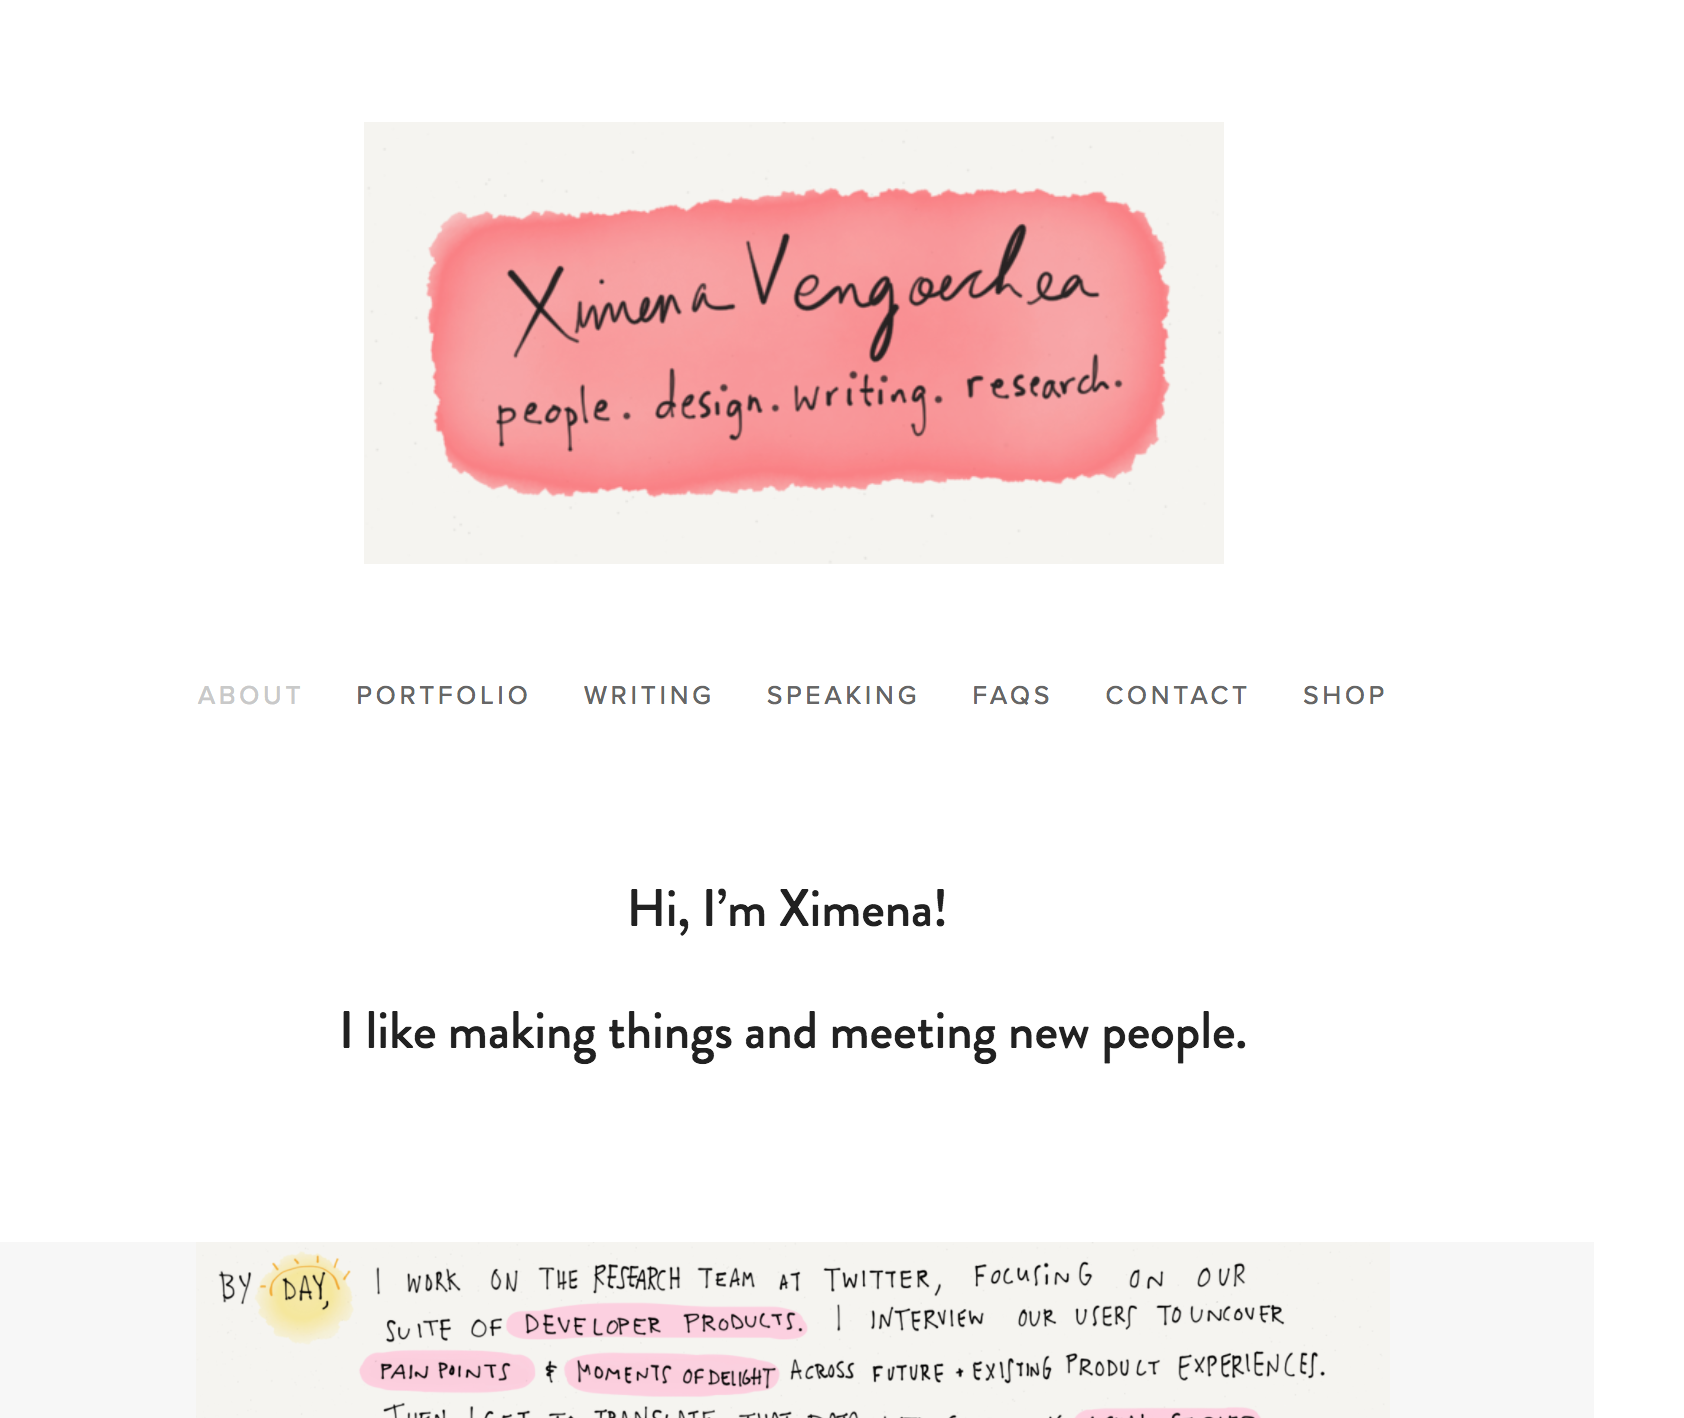 Ximena Vengoechea
people. design. writing. research.
ABOUT PORTFOLIO WRITING SPEAKING FAQS CONTACT SHOP
Hi, I’m Ximena!
I like making things and meeting new people.
BY DAY, I WORK ON THE RESEARCH TEAM AT TWITTER, FOCUSING ON OUR
SUITE OF DEVELOPER PRODUCTS. I INTERVIEW OUR USERS TO UNCOVER
PAIN POINTS & MOMENTS OF DELIGHT ACROSS FUTURE + EXISTING PRODUCT EXPERIENCES.
THEN I GET TO TRANSLATE THAT DATA